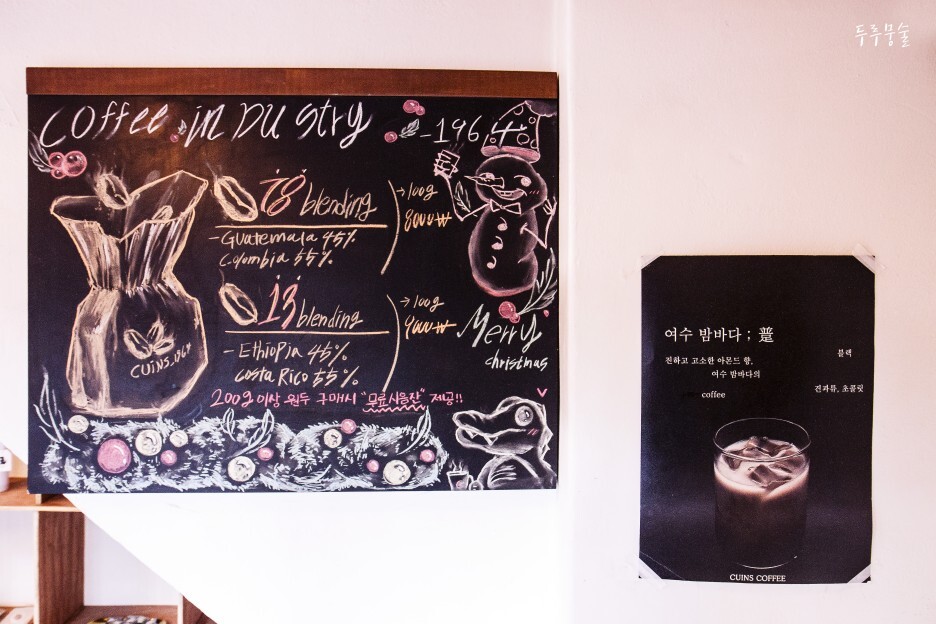 두루뭉술
Coffee in DUstry -1964
18 blending
-Guatemala 45%
Colombia 55%
→100g
8000₩
13 blending
-Ethiopia 45%
Costa Rico 55%
→100g
9000₩
CUINS_1964
Merry
christmas
200g 이상 원두 구매시 "무료시음잔" 제공!!
여수 밤바다 ;
블랙
진하고 고소한 아몬드 향,
여수 밤바다의
견과류, 초콜릿
coffee
CUINS COFFEE